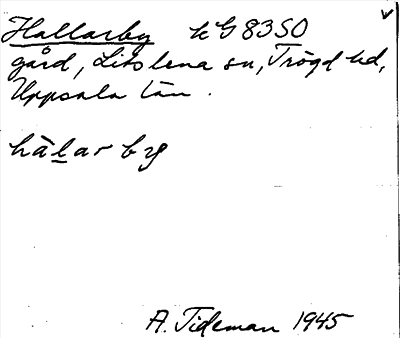 Hallarby hG83SO
gård, Litslena sn, Trögd hd,
Uppsala län.
hàlar by
A. Tideman 1945